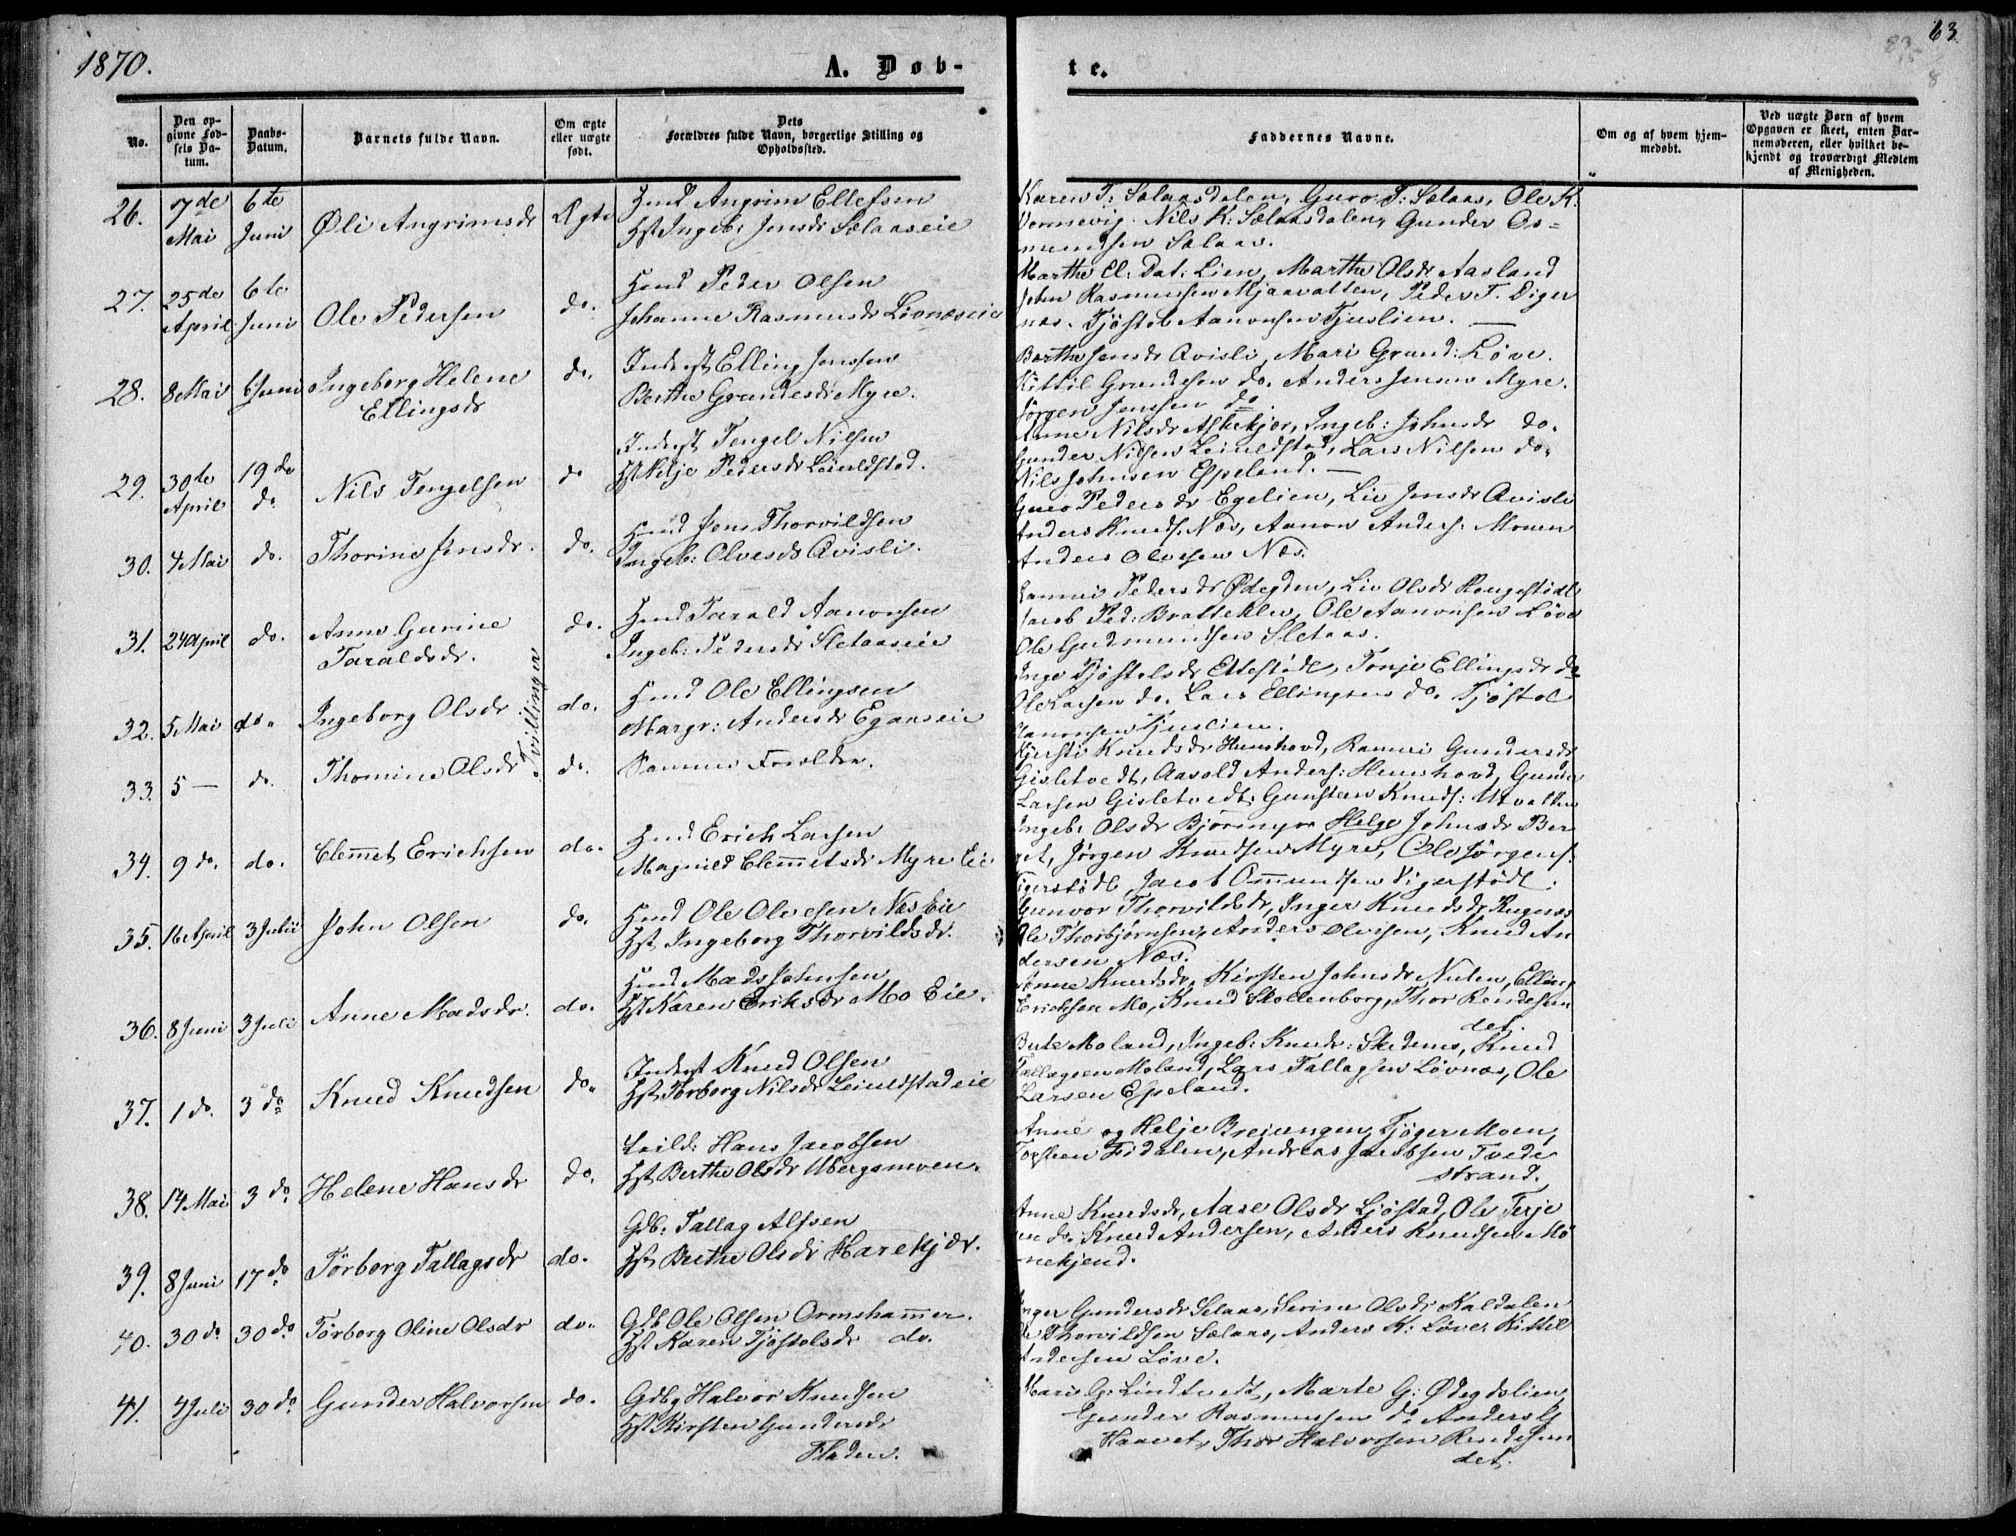 1870.
A. Døb-
te.
63
83
No.
Den op-
givne Fød-
sels Da-
tum.
Daabs-
Datum.
Barnets fulde Navn.
Om ægte
eller uægte
født.
Dets
Forældres fulde Navn, borgerlige Stilling og
Opholdssted.
Faddernes Navne.
Om og af hvem hjem-
medøbt.
Ved uægte Børn af hvem
Opgaven er skeet, enten Bar-
nemoderen, eller hvilket be-
kjendt og troværdigt Medlem
af Menigheden.
26. 7de Mai 6te Juni Øli Angrimsdr Ægte
Hmd Angrim Ellefsen
Hst Ingeb: Jensdr Sælaaseie
Karen T: Sælaasdalen, Guro T: Sælaas, Ole K.
Vormevig. Nils K: Sælaasdalen, Gunder Os-
mundsen Sælaas.
27. 25de April 6te Juni Ole Pedersen do.
Hmd Peder Olsen
Johanne Rasmusdr Lionæseie
Marthe El: Dat: Lien, Marthe Olsdr Aasland
John Rasmussen Mjaavatten, Peder T. Diger
næs. Tjøstol Aanonsen Tjuslien.
28. 8 Mai 6 Juni Ingeborg Helene
Ellingsdr do.
Inderst Elling Jenssen
Berthe Grundesdr Myre.
Berthe Jensdr Avisli, Mari Grund: Løve.
Kittil Grundesen do. Anders Jensen Myre.
Jørgen Jenssen do.
29. 30te April 19de do Nils Tengelsen do
Inderst Tengel Nilsen
Hst Helje Pedersdr Leiuldstad.
Anne Nilsdr Askekjær, Ingeb: Johnsdr do.
Gunder Nilsen Leiuldstad, Lars Nilsen do.
Nils Johnsen Espeland.
30. 4 Mai do. Thorine Jensdr. do.
Hmd Jens Thorvildsen
Ingeb: Olvesdr Avisli.
Guro Pedersdr Egelien, Liv Jensdr Avisli
Anders Knuds. Næs, Aanon Anders. Monen
Anders Olvesen Næs.
31. 24 April do. Anne Gurine
Taraldsdr. do.
Hmd Tarald Aanonsen
Ingeb: Pedersdr Sletaaseie
Rannei Pedersdr Ødegden, Liv Olsdr Haugestødl
Jacob Ped: Bratteklev, Ole Aanonsen Løve
Ole Gudmundsen Sletaas.
32. 5 Mai do. Ingeborg Olsdr do.
Tvillinger
Hmd Ole Ellingsen
Margr: Andersdr Egaaseie
Inge Tjøstolsdr Ettestødl, Tonje Ellingsdr do
Ole Larsen do. Lars Ellingsen do. Tjøstol
Aanonsen Tjuslien.
33. 5 — do. Thomine Olsdr do.
Samme Forældre.
Kjersti Knudsdr Heimhovd, Rannei Gundersdr
Gisletvedt, Aasold Anders: Heimhovd, Gunder
Larsen Gisletvedt, Gunsten Knuds: Utvatten
34. 9 do. do. Clemmet Erichsen do.
Hmd Erich Larsen
Magnild Clemmetsdr Myre Eie
Ingeb: Olsdr Bjørnmyr Helge Johnsdr Ber
get, Jørgen Knudsen Myre, Ole Jørgens.
Vigerstødl, Jacob Ommundsen Vigerstødl.
35. 16 April 3 Julii John Olsen do.
Hmd Ole Olvesen Næs Eie
Hst Ingeborg Thorvildsdr.
Gunvor Thorvildsdr, Inger Knudsdr Rugnæs
Ole Thorbjørnsen, Anders Olvesen, Knud An
dersen Næs.
36. 8 Juni 3 Juli Anne Madsdr. do.
Hmd Mads Johnsen
Hst Karen Eriksdr Mo Eie.
Anne Knudsdr, Kirsten Johnsdr Nuten, Elling
Erichsen Mo, Knud Skollenborg, Thor Rendesun
det.
37. 1 do. 3 do Knud Knudsen do.
Inderst Knud Olsen
Hst Torborg Nilsdr Leiuldstadeie
Berte Moland, Ingeb: Knuds: Skedsnes, Knud
Tallagsen Moland, Lars Tallagsen Løvnæs, Ole
Larsen Espeland.
38. 14 Mai 3 do Helene Hansdr do.
Leild: Hans Jacobsen
Hst Berthe Olsdr Ubergsmoen.
Anne og Helje Breiungen, Tjøger Moen,
Torsteen Fidalen, Andreas Jacobsen Tvede
strand.
39. 8 Juni 17 do Torborg Tallagsdr do.
Gdb. Tallag Alfsen
Hst Berthe Olsdr Harekjær.
Anne Knudsdr, Aase Olsdr Ljøstad, Ole Terje
sen do. Knud Andersen, Anders Knudsen Mø
nekjend.
40. 30 do 30 do Torborg Oline Olsdr do.
Gdb Ole Olsen Ormshammer.
Hst Karen Tjøstolsdr do.
Inger Gundersdr Selaas, Serine Olsdr Kaldalen
Ole Thorvildsen Sælaas, Anders K: Løve, Kittil
Andersen Løve.
41. 4 Juli 30 do Gunder Halvorsen do.
Gdbg Halvor Knudsen
Hst Kirsten Gundersdr
Fladen.
Marie G: Lindtvedt, Marte G: Ødegdslien,
Gunder Rasmussen do Anders G
Haavet, Thor Halvorsen Rendesun
det.